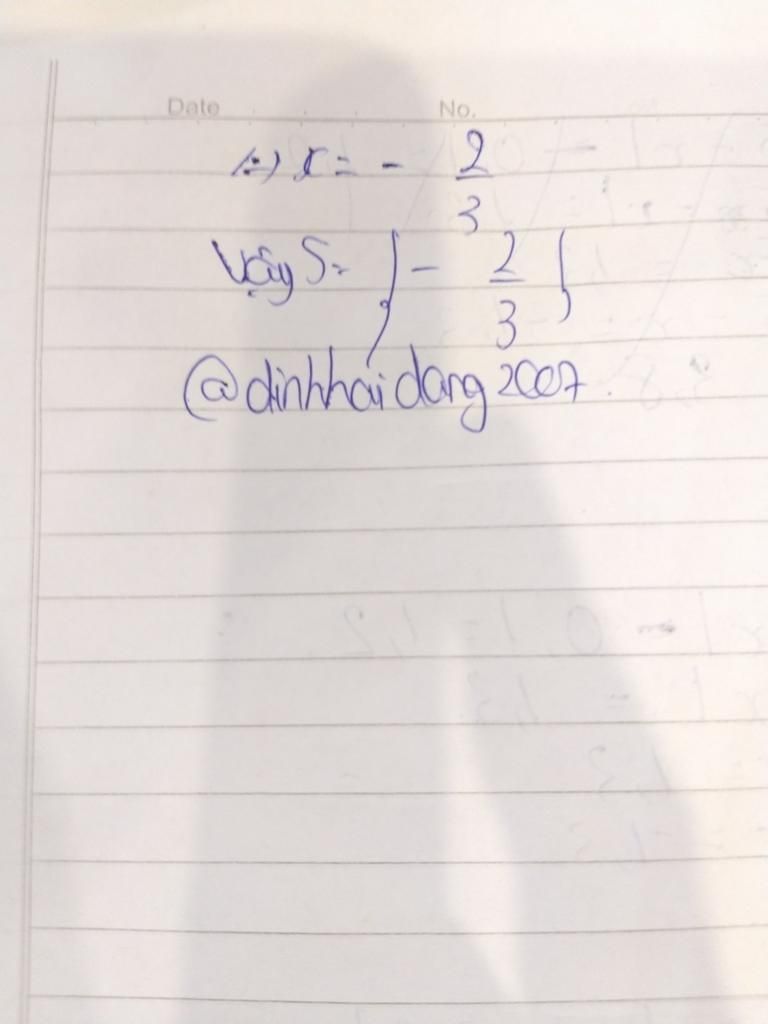 Date No.
⇔ x = - 2/3
Vậy S = { - 2/3 }
@dinhhaidang2007